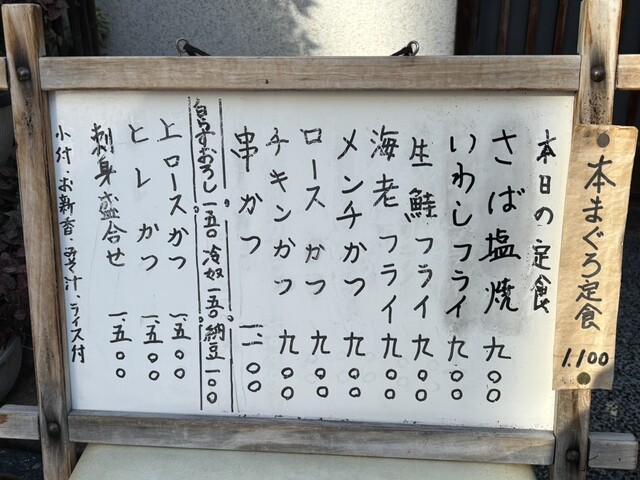 本まぐろ定食
1.100
本日の定食
さば塩焼 九〇〇
いわしフライ 九〇〇
生鮭フライ 九〇〇
海老フライ 九〇〇
メンチかつ 九〇〇
ロースかつ 九〇〇
チキンかつ 九〇〇
串かつ 一一〇〇
しらすおろし 一五〇 冷奴 一五〇 納豆 一〇〇
上ロースかつ 一五〇〇
ヒレかつ 一五〇〇
刺身盛合せ 一五〇〇
小付・お新香・みそ汁、ライス付